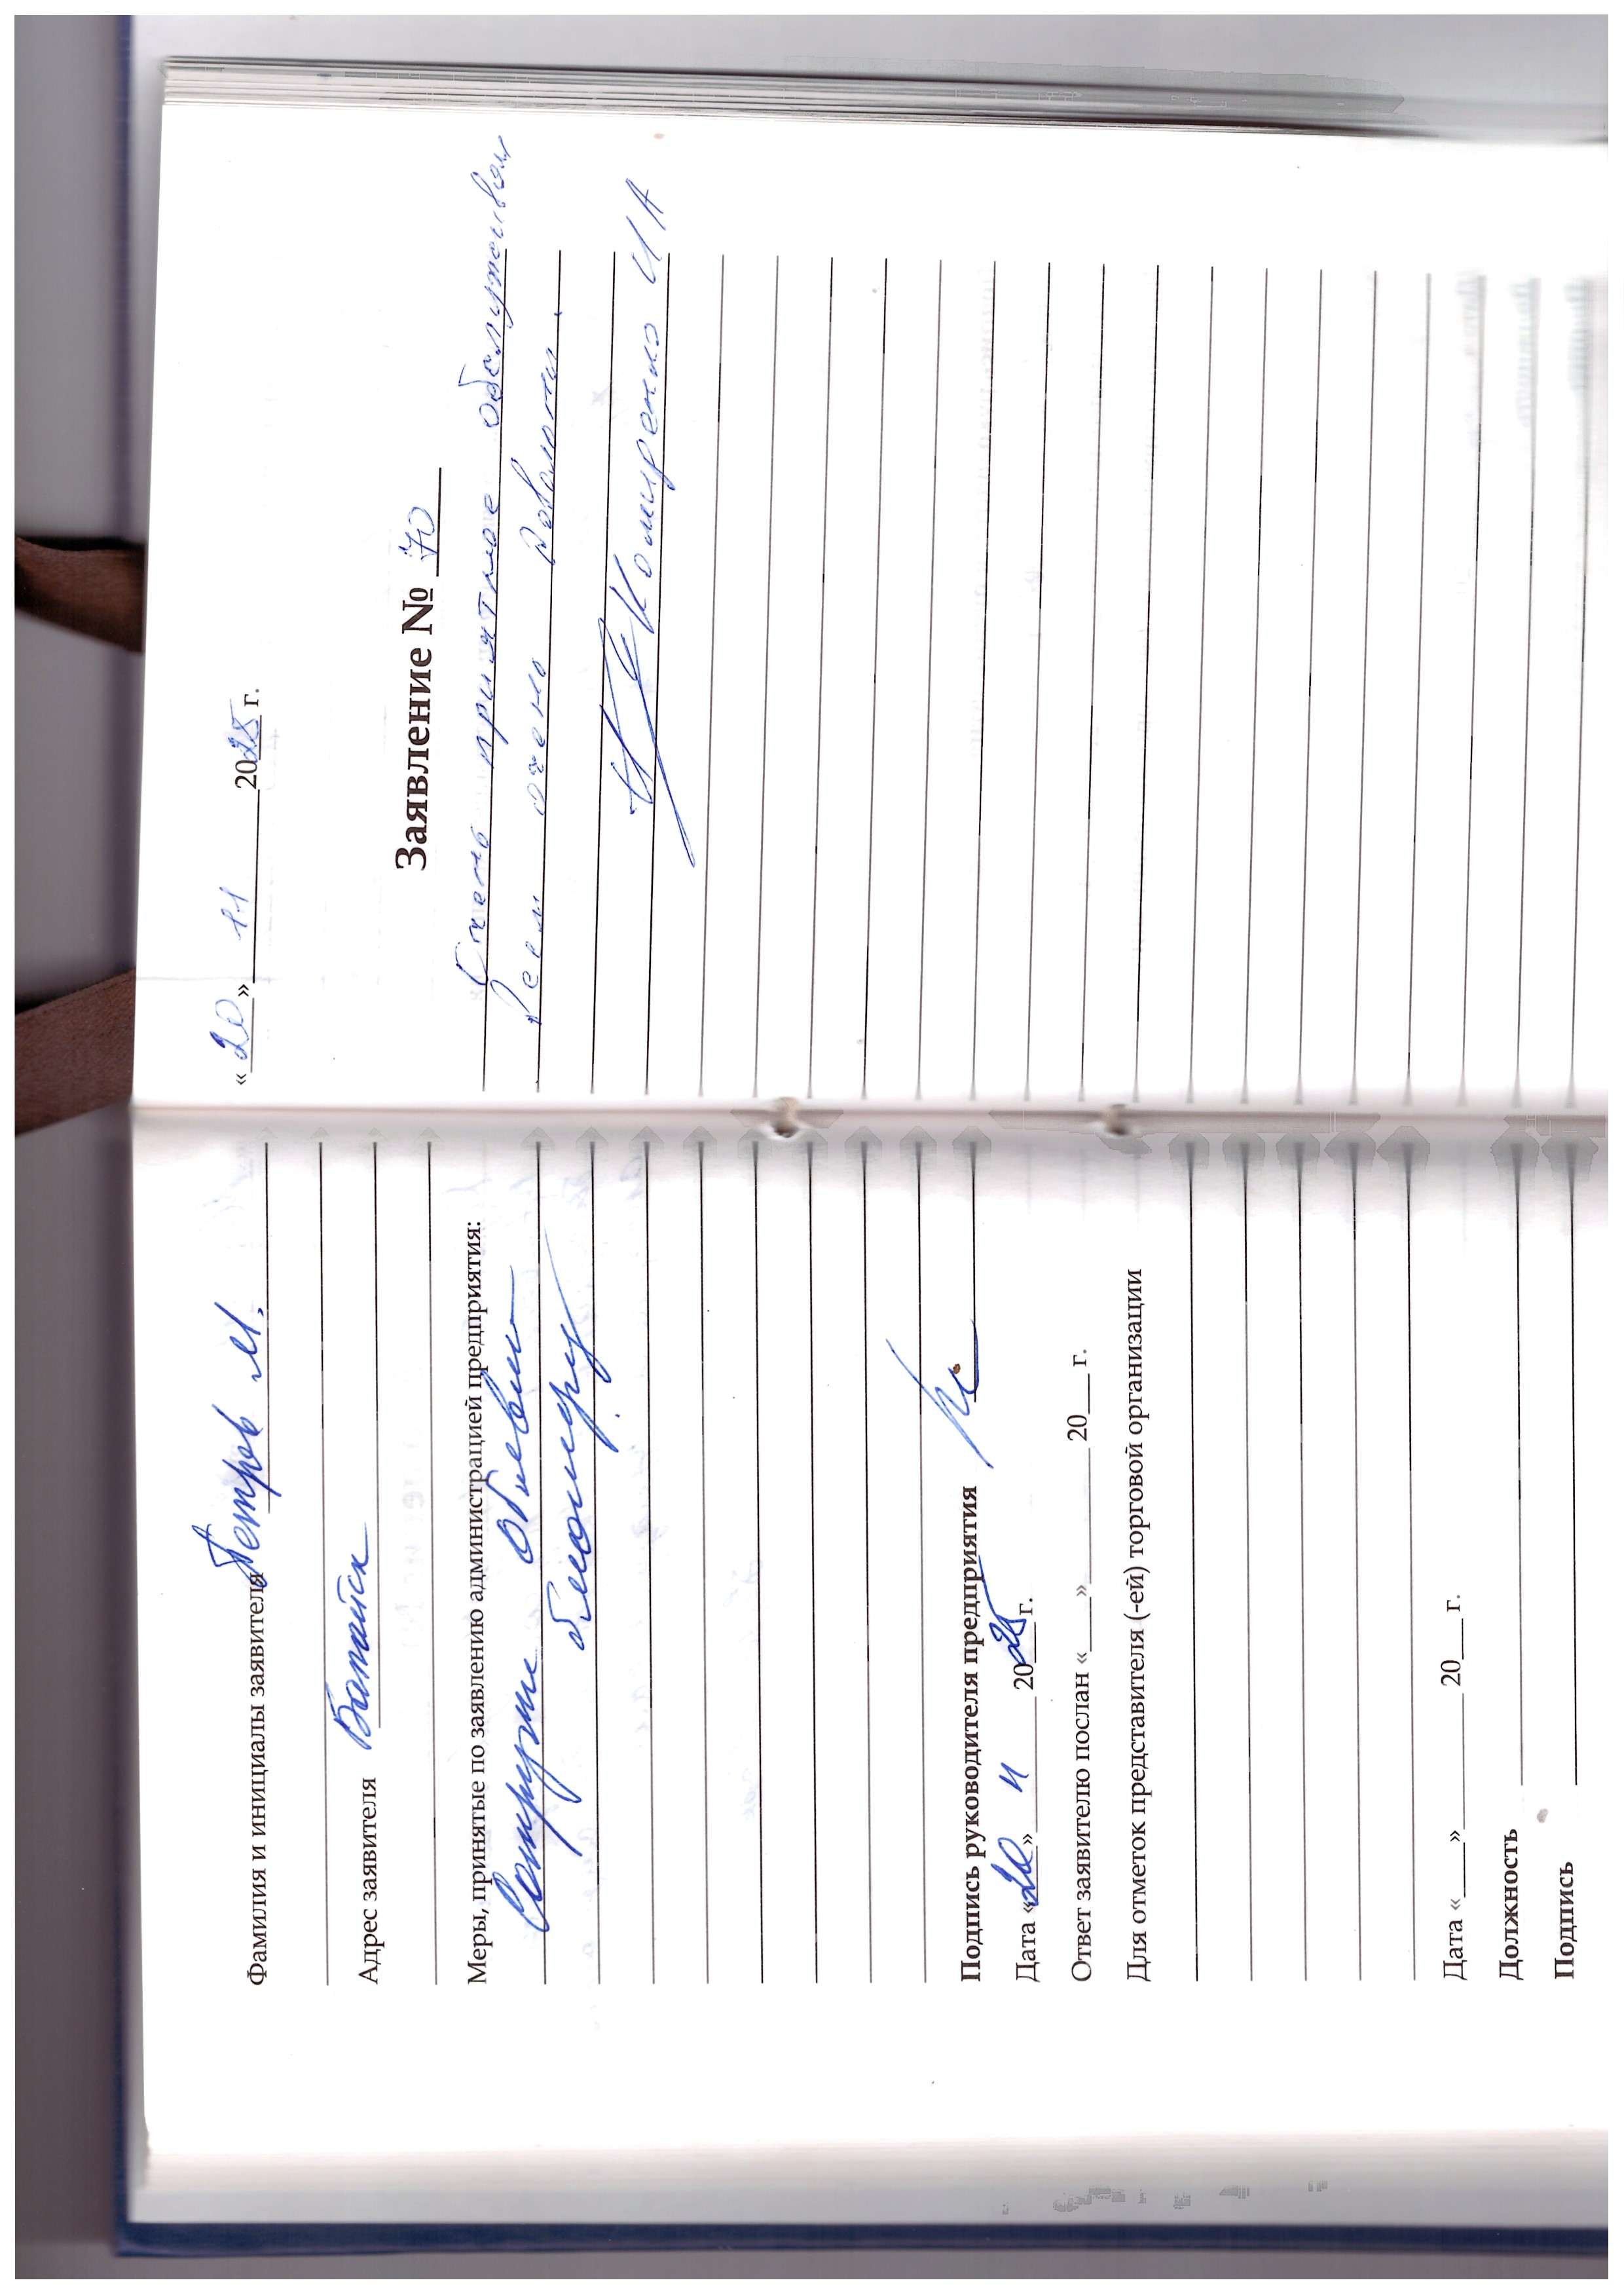 Фамилия и инициалы заявителя Петров М.
Адрес заявителя Батайск
Меры, принятые по заявлению администрацией предприятия:
Сотруднице объявили
благодарность
Подпись руководителя предприятия
Дата «20» 11 2025 г.
Ответ заявителю послан «___»__________ 20___г.
Для отметок представителя (-ей) торговой организации
Дата «____»__________ 20___г.
Должность
Подпись
«20» 11 2025 г.
Заявление № 70
Очень приятное обслуживан
очень довольны.